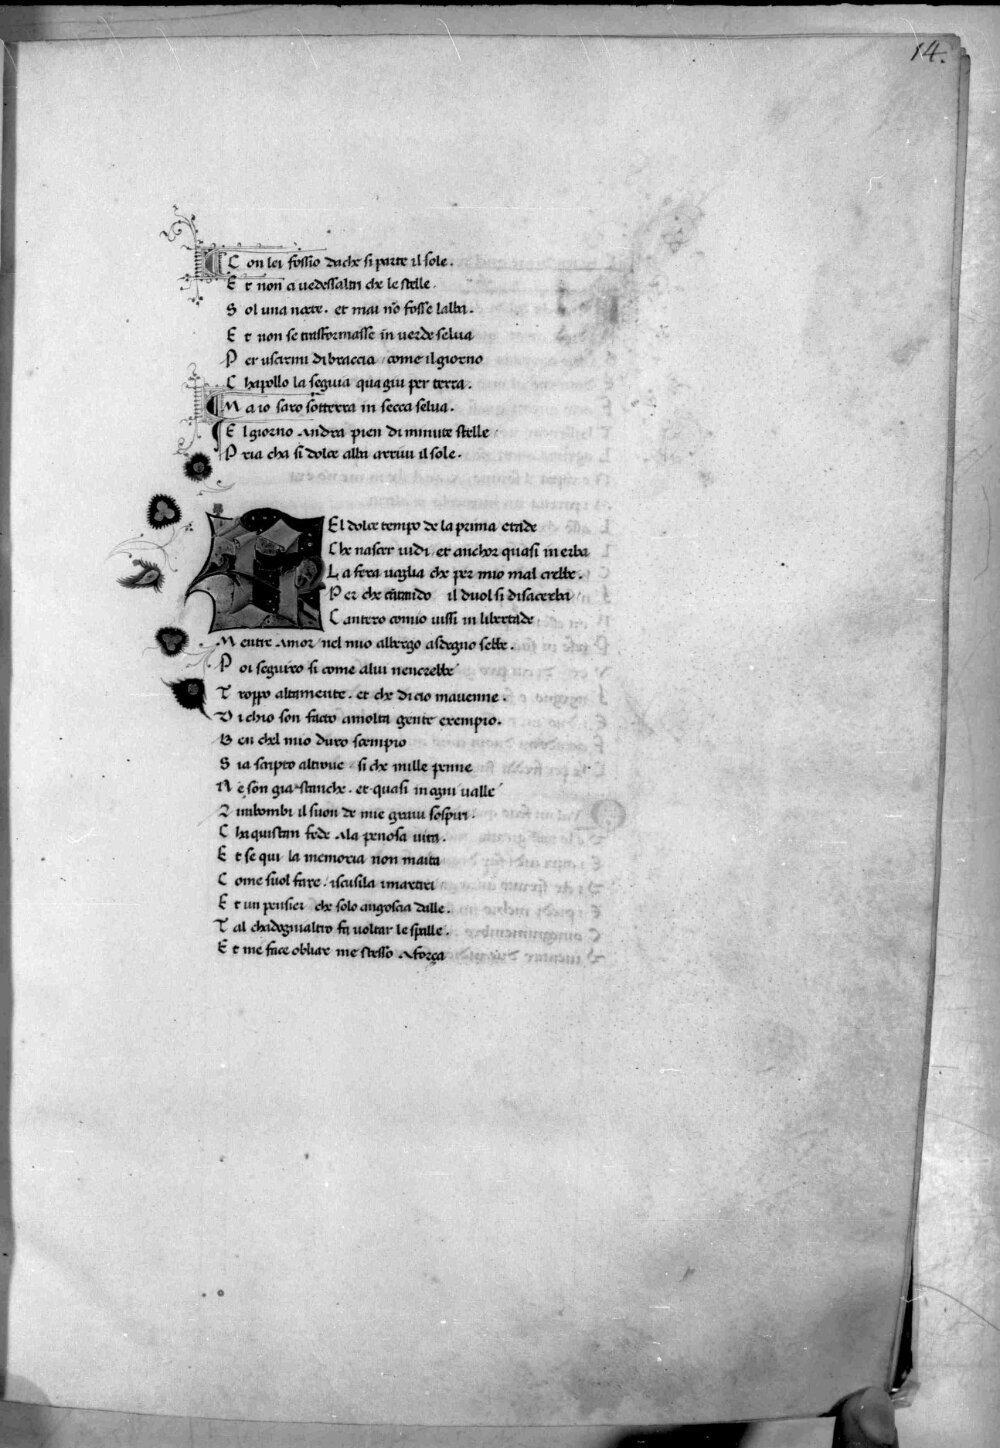 14.
Con lei fossio da che si parte il sole.
Et non a vedessaltri che le stelle.
Sol una nocte. et mai nõ fosse lalba.
Et non se trasformasse in verde selva
Per uscirmi di braccia come il giorno
Chapollo la seguia qua giu per terra.
Ma io saro sotterra in secca selva.
El giorno andra pien di minute stelle
Pria cha si dolce alba arrivi il sole.
Nel dolce tempo de la prima etade
Che nascer vidi et anchor quasi in erba
La fera voglia che per mio mal crebbe.
Per che cantando il duol si disacerba
Cantero comio vissi in libertade
Mentre Amor nel mio albergo a sdegno sebbe.
Poi seguiro si come a lui nencrebbe
Troppo altamente. et che di cio mavenne.
Di chio son facto a molta gente exempio.
Ben chel mio duro scempio
Sia scripto altrove si che mille penne
Ne son gia stanche. et quasi in ogni valle
Rimbombi il suon de mie gravi sospiri.
Chaquistan fede a la penosa vita.
Et se qui la memoria non maita
Come suol fare. iscusila i martiri
Et un pensier che solo angoscia dalle.
Tal chadognialtro fa voltar le spalle.
Et me face obliar me stesso a força